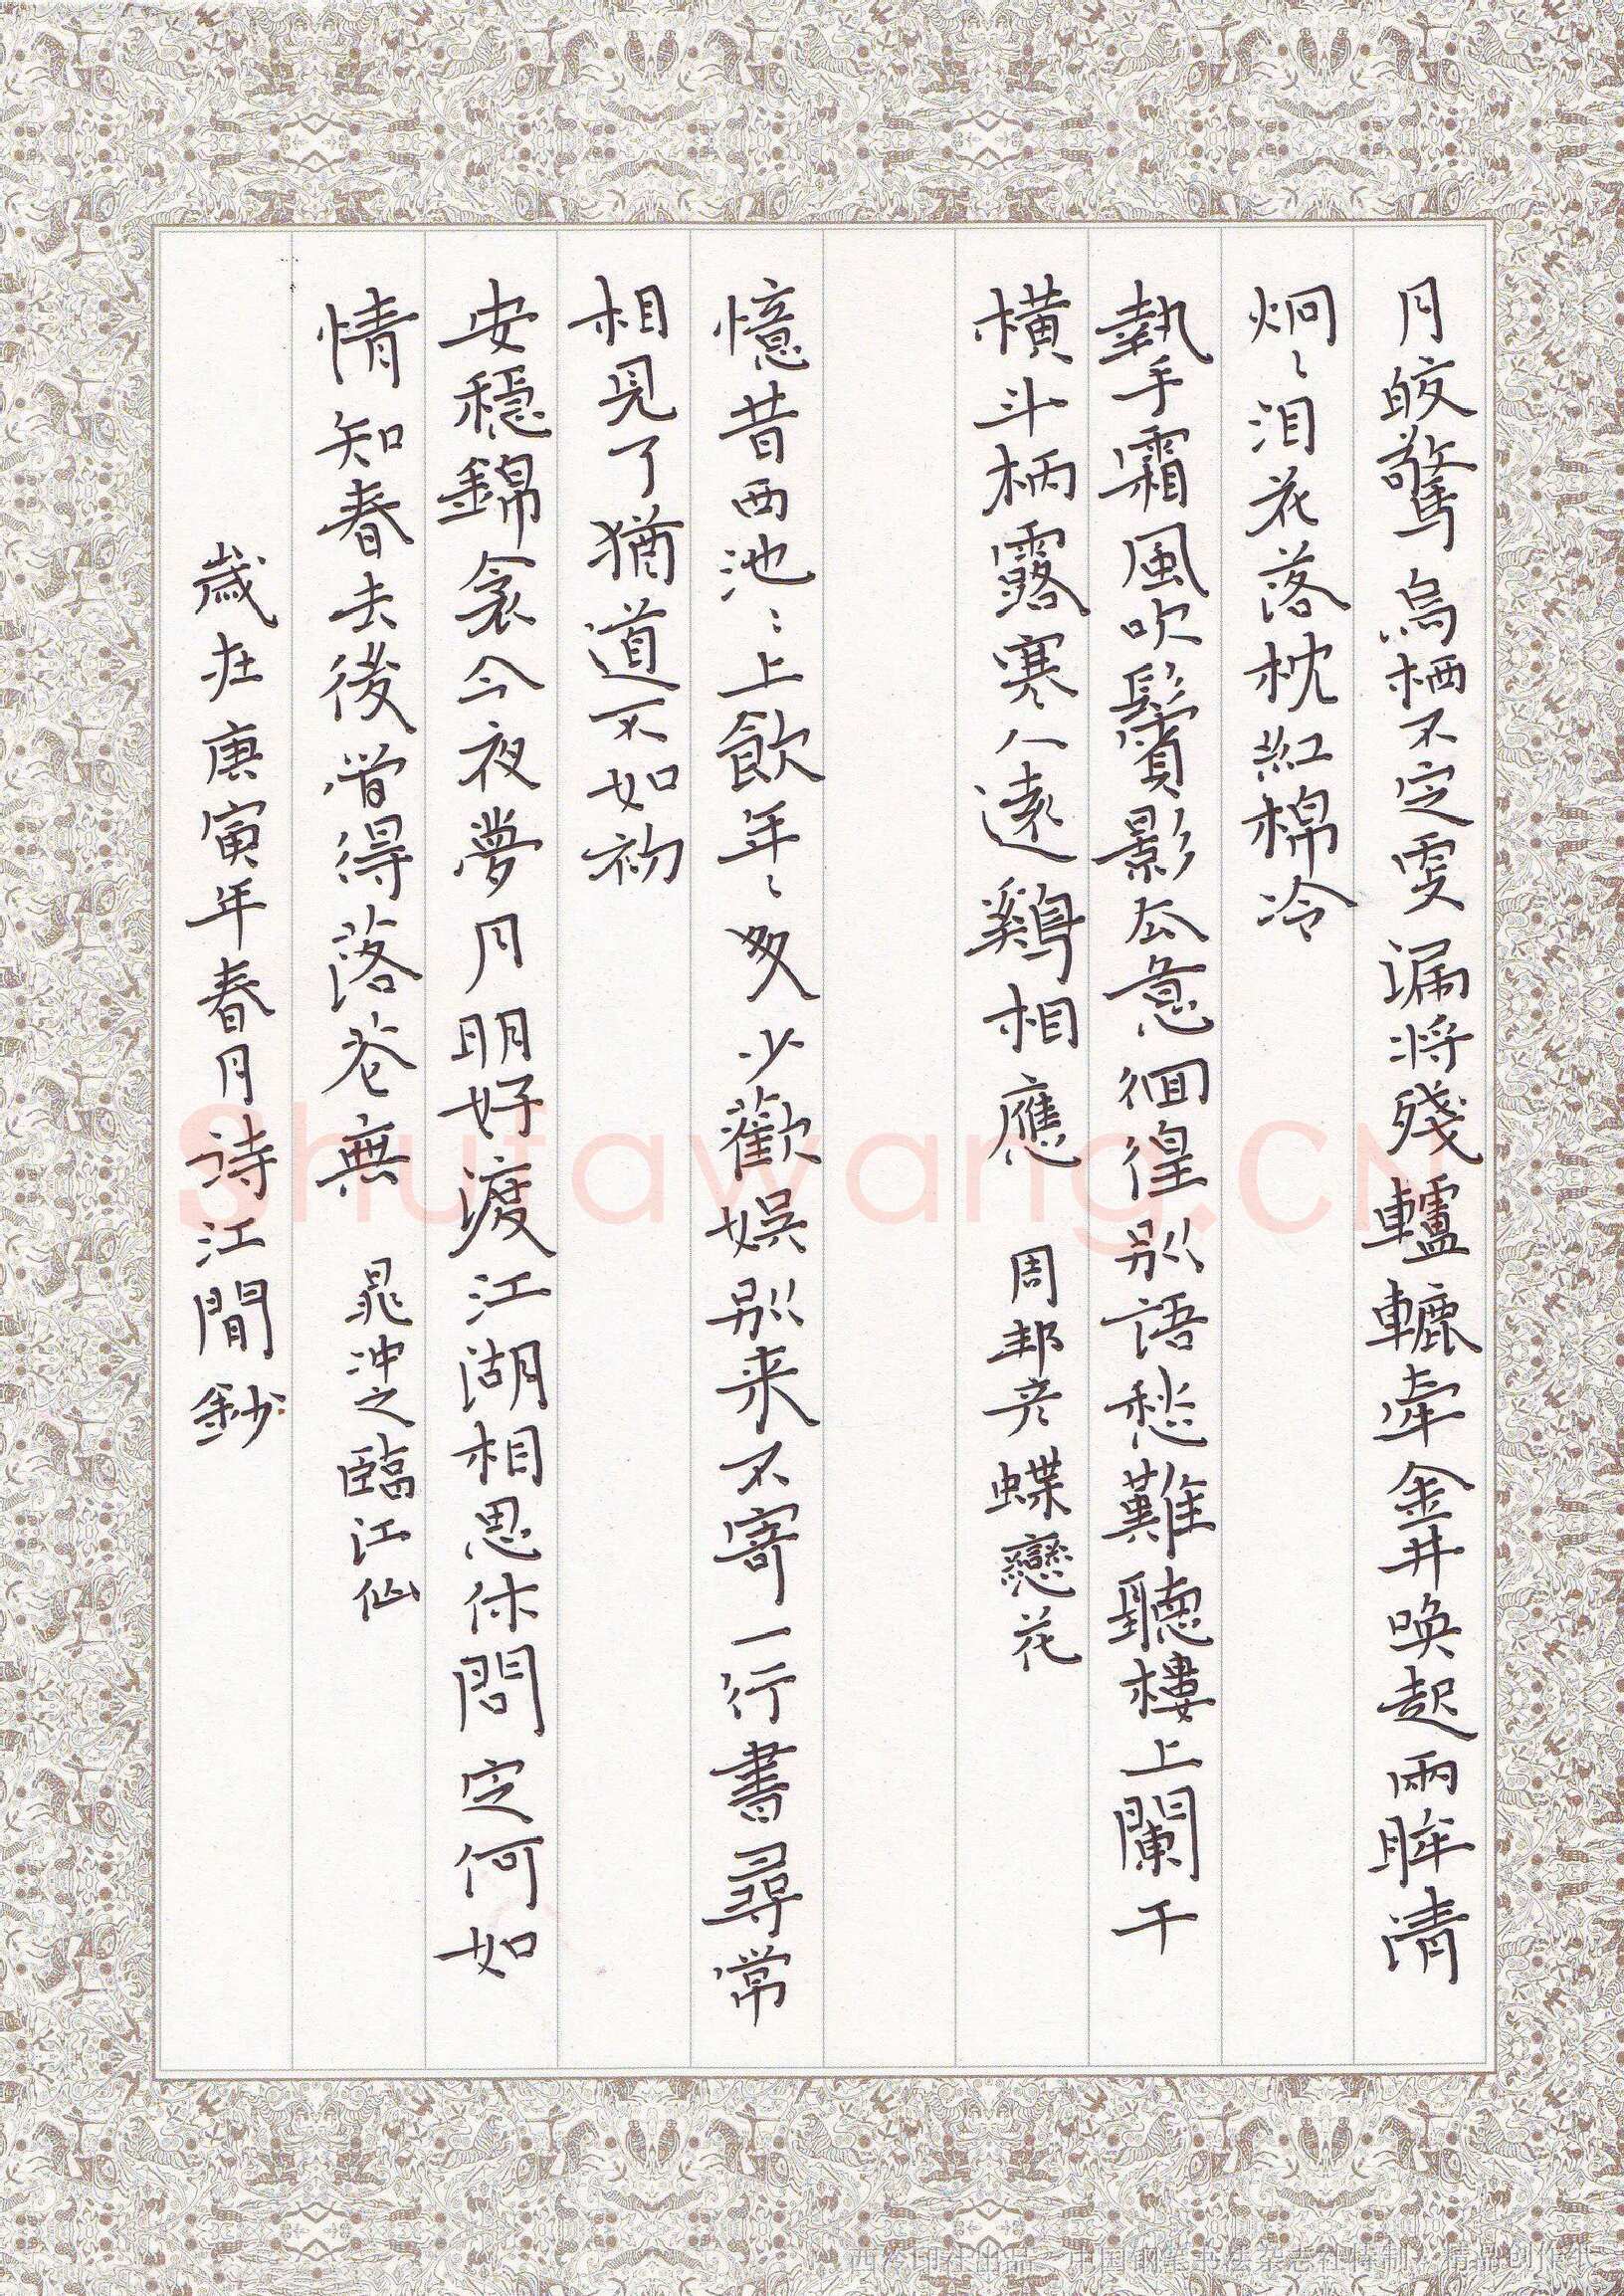 月皎驚烏栖不定更漏將殘轤轆牽金井喚起兩眸清
炯〻泪花落枕紅棉冷
執手霜風吹鬢影去意徊徨别語愁難聽樓上闌干
橫斗柄露寒人遠鷄相應 周邦彦蝶戀花
憶昔西池〻上飲年〻多少歡娱别来不寄一行書尋常
相見了猶道不如初
安穩錦衾今夜夢月明好渡江湖相思休問定何如
情知春去後管得落花無 晁沖之臨江仙
歲在庚寅年春月詩江閒鈔
Shufawang.CN
西泠印社出品 中国钢笔书法杂志社特制 精品创作纸